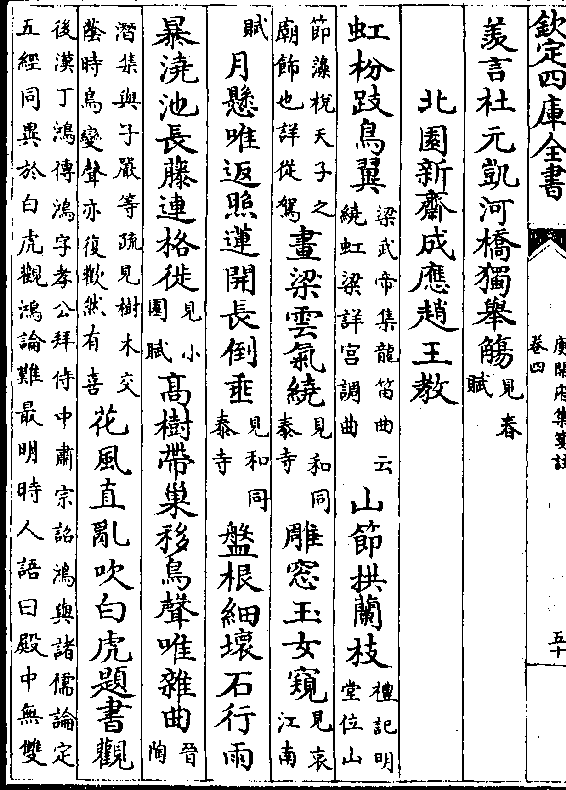 欽定四庫全書
庾開府集箋註
卷四
五十
羨言杜元凱河橋獨舉觴見春賦
北園新齋成應趙王教
虹枌跂鳥翼梁武帝集龍笛曲云繞虹梁詳宫調曲山節拱蘭枝禮記明堂位山
節藻梲天子之廟飾也詳從駕畫梁雲氣繞見和同泰寺雕窓玉女窺見哀江南
賦月懸唯返照蓮開長倒垂見和同泰寺盤根細壞石行雨
暴澆池長藤連格徙見小園賦高樹帶巢移鳥聲唯雜曲晉陶
潛集與子嚴等疏見樹木交蔭時鳥變聲亦復歡然有喜花風直亂吹白虎題書觀
後漢丁鴻傳鴻字孝公拜侍中肅宗詔鴻與諸儒論定五經同異於白虎觀鴻論難最明時人語曰殿中無雙